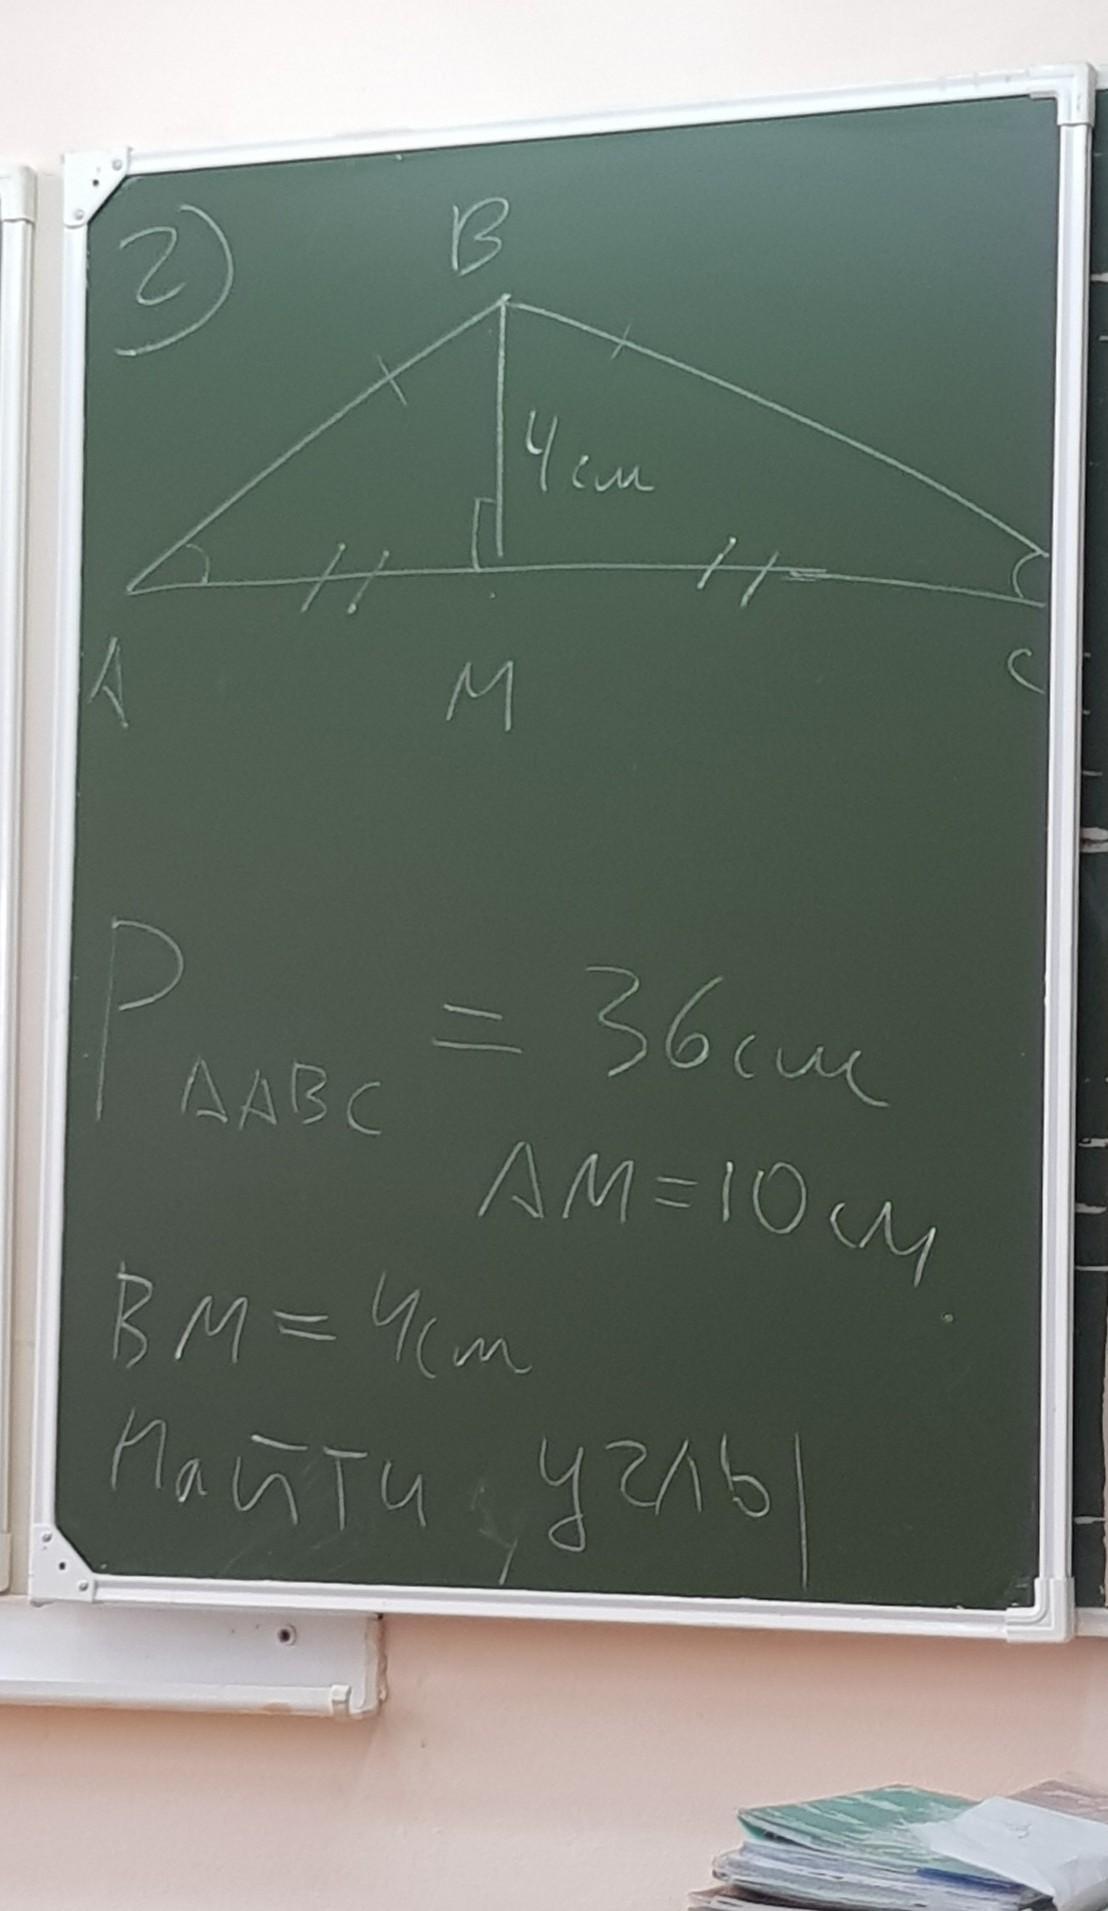 2)
B
4см
A M C
P ΔABC = 36см
AM=10см
BM=4см
Найти углы